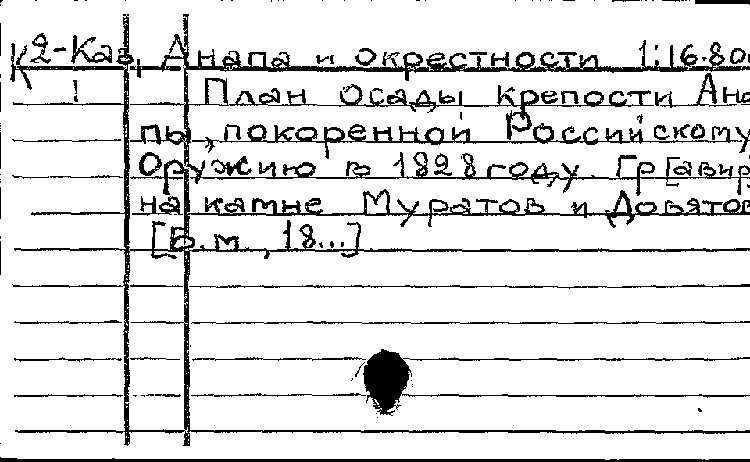 К 2-Кав, Анапа и окрестности 1:16.80
! План осады крепости Ана
пы, покоренной Российскому
Оружию в 1828 году. Гр[авир
на камне Муратов и Довятов
[Б.м., 18...]